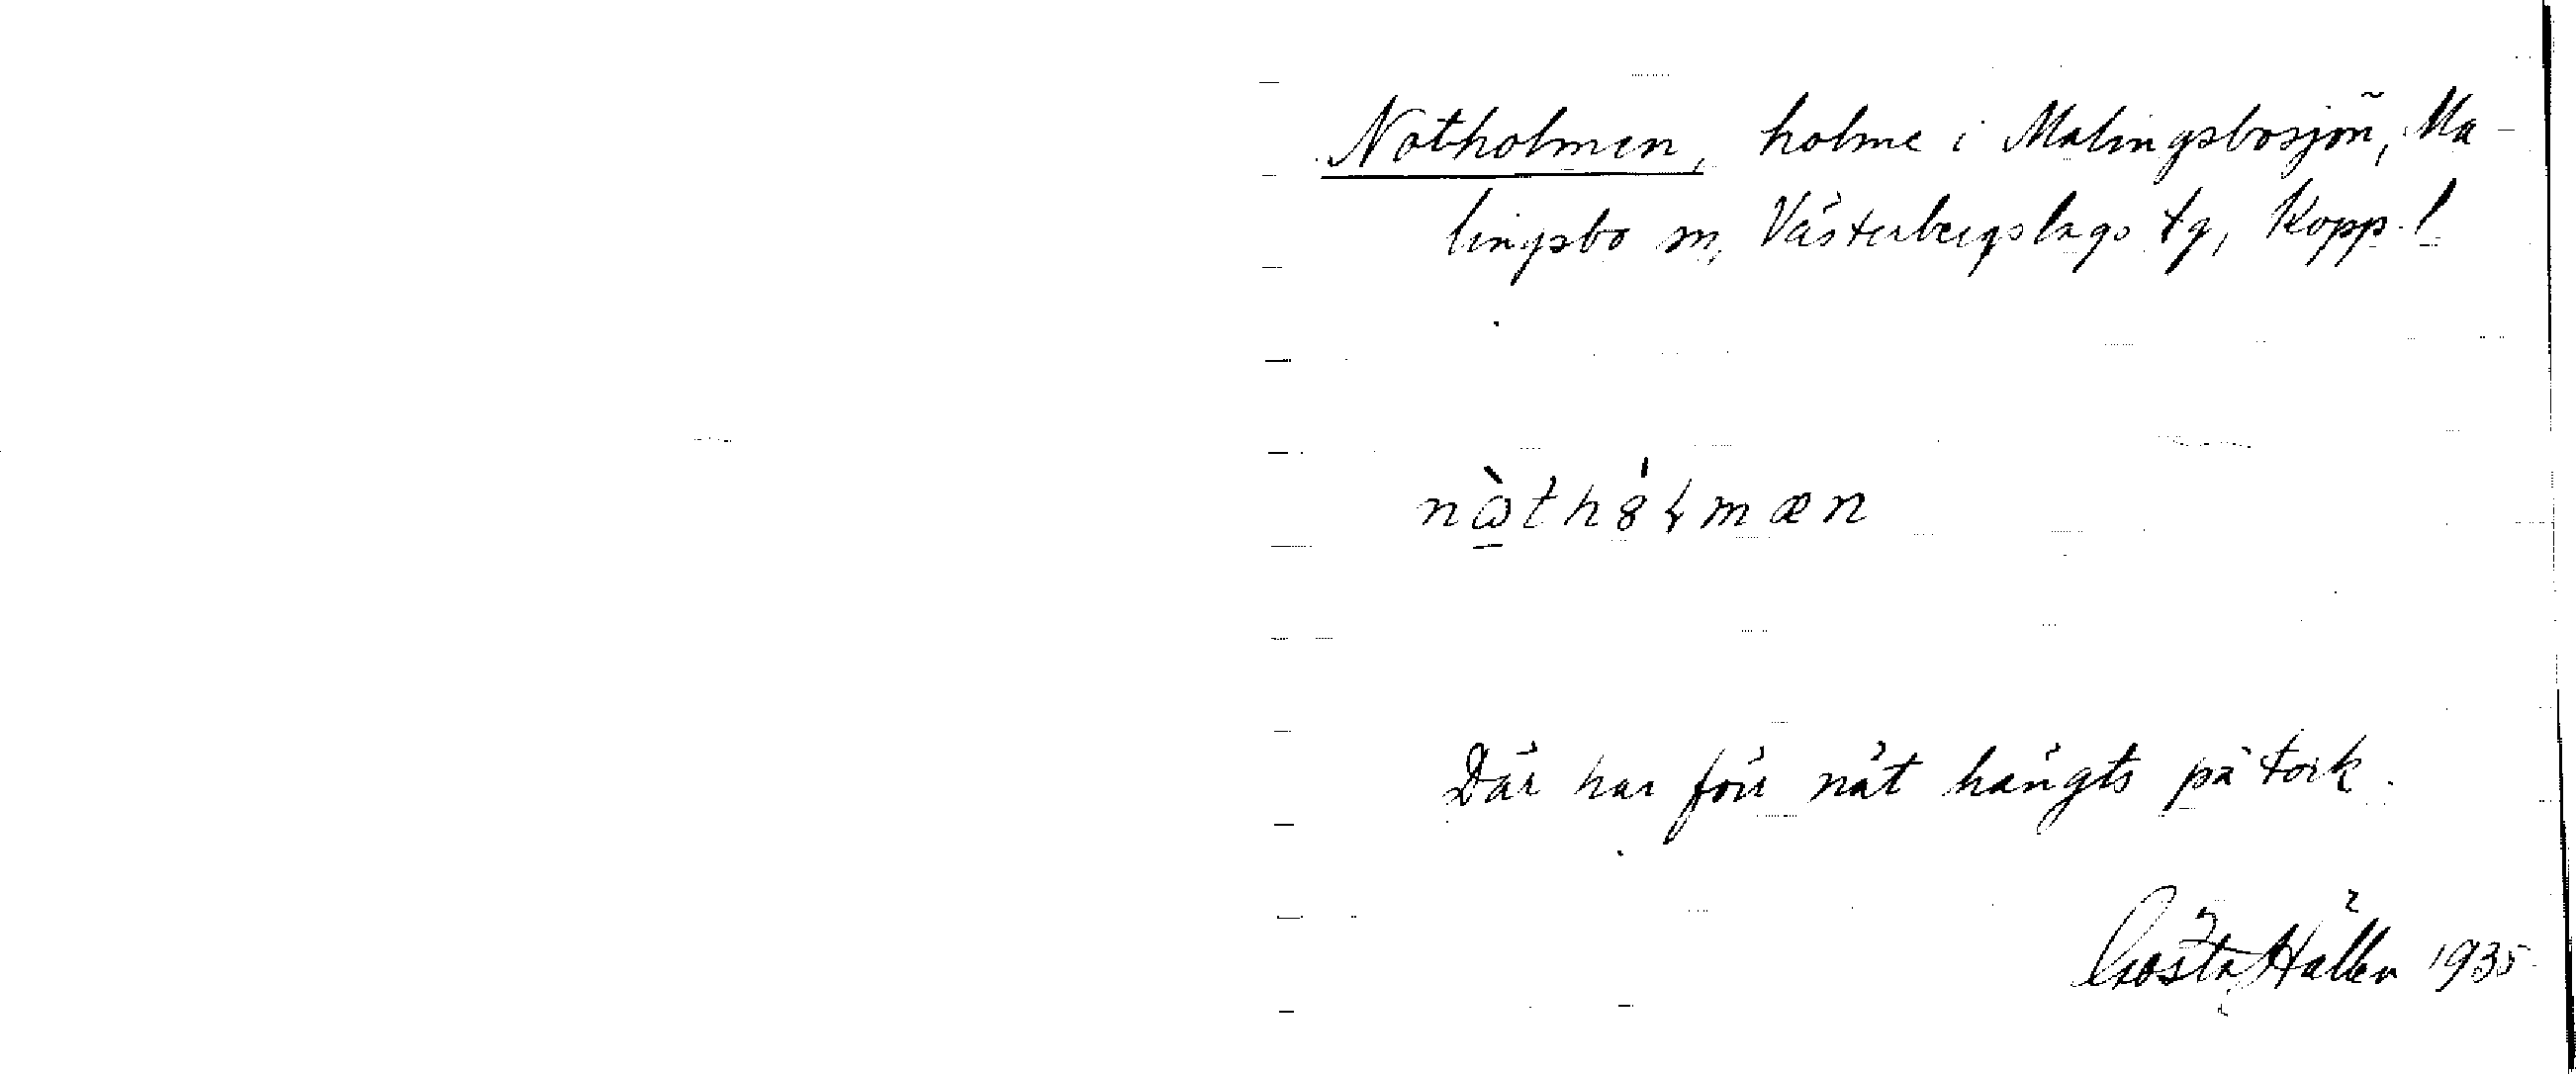 Notholmen, holme i Malingsbosjön, Ma-
lingsbo sn, Västerbergslags tg, Kopp. l.
Där har förr nät hängts på tork.
Gösta Hallen 1935